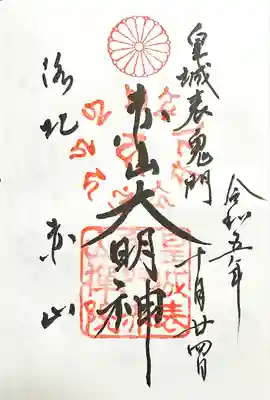 皇城表鬼門
令和五年
十月廿四日
赤山大明神
洛北
赤山